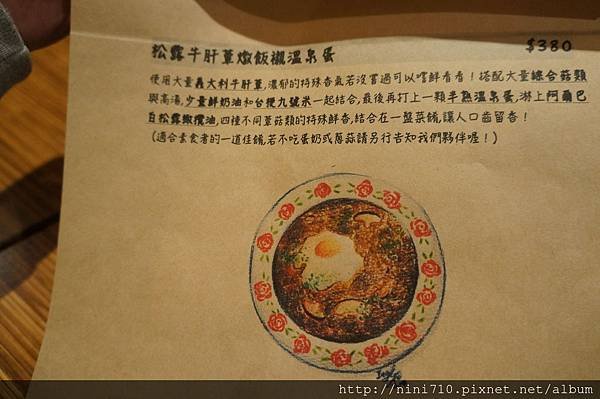 松露牛肝蕈燉飯襯溫泉蛋 $380
使用大量義大利牛肝蕈,濃郁的特殊香氣若沒嘗過可以嚐鮮看看!搭配大量綜合菇類
與高湯,少量鮮奶油和台梗九號米一起結合,最後再打上一顆半熟溫泉蛋,淋上阿爾巴
白松露橄欖油,四種不同蕈菇類的特殊鮮香,結合在一盤菜餚,讓人口齒留香!
(適合素食者的一道佳餚,若不吃蛋奶或蔥蒜請另行告知我們夥伴喔!)
http://nini710.pixnet.net/album